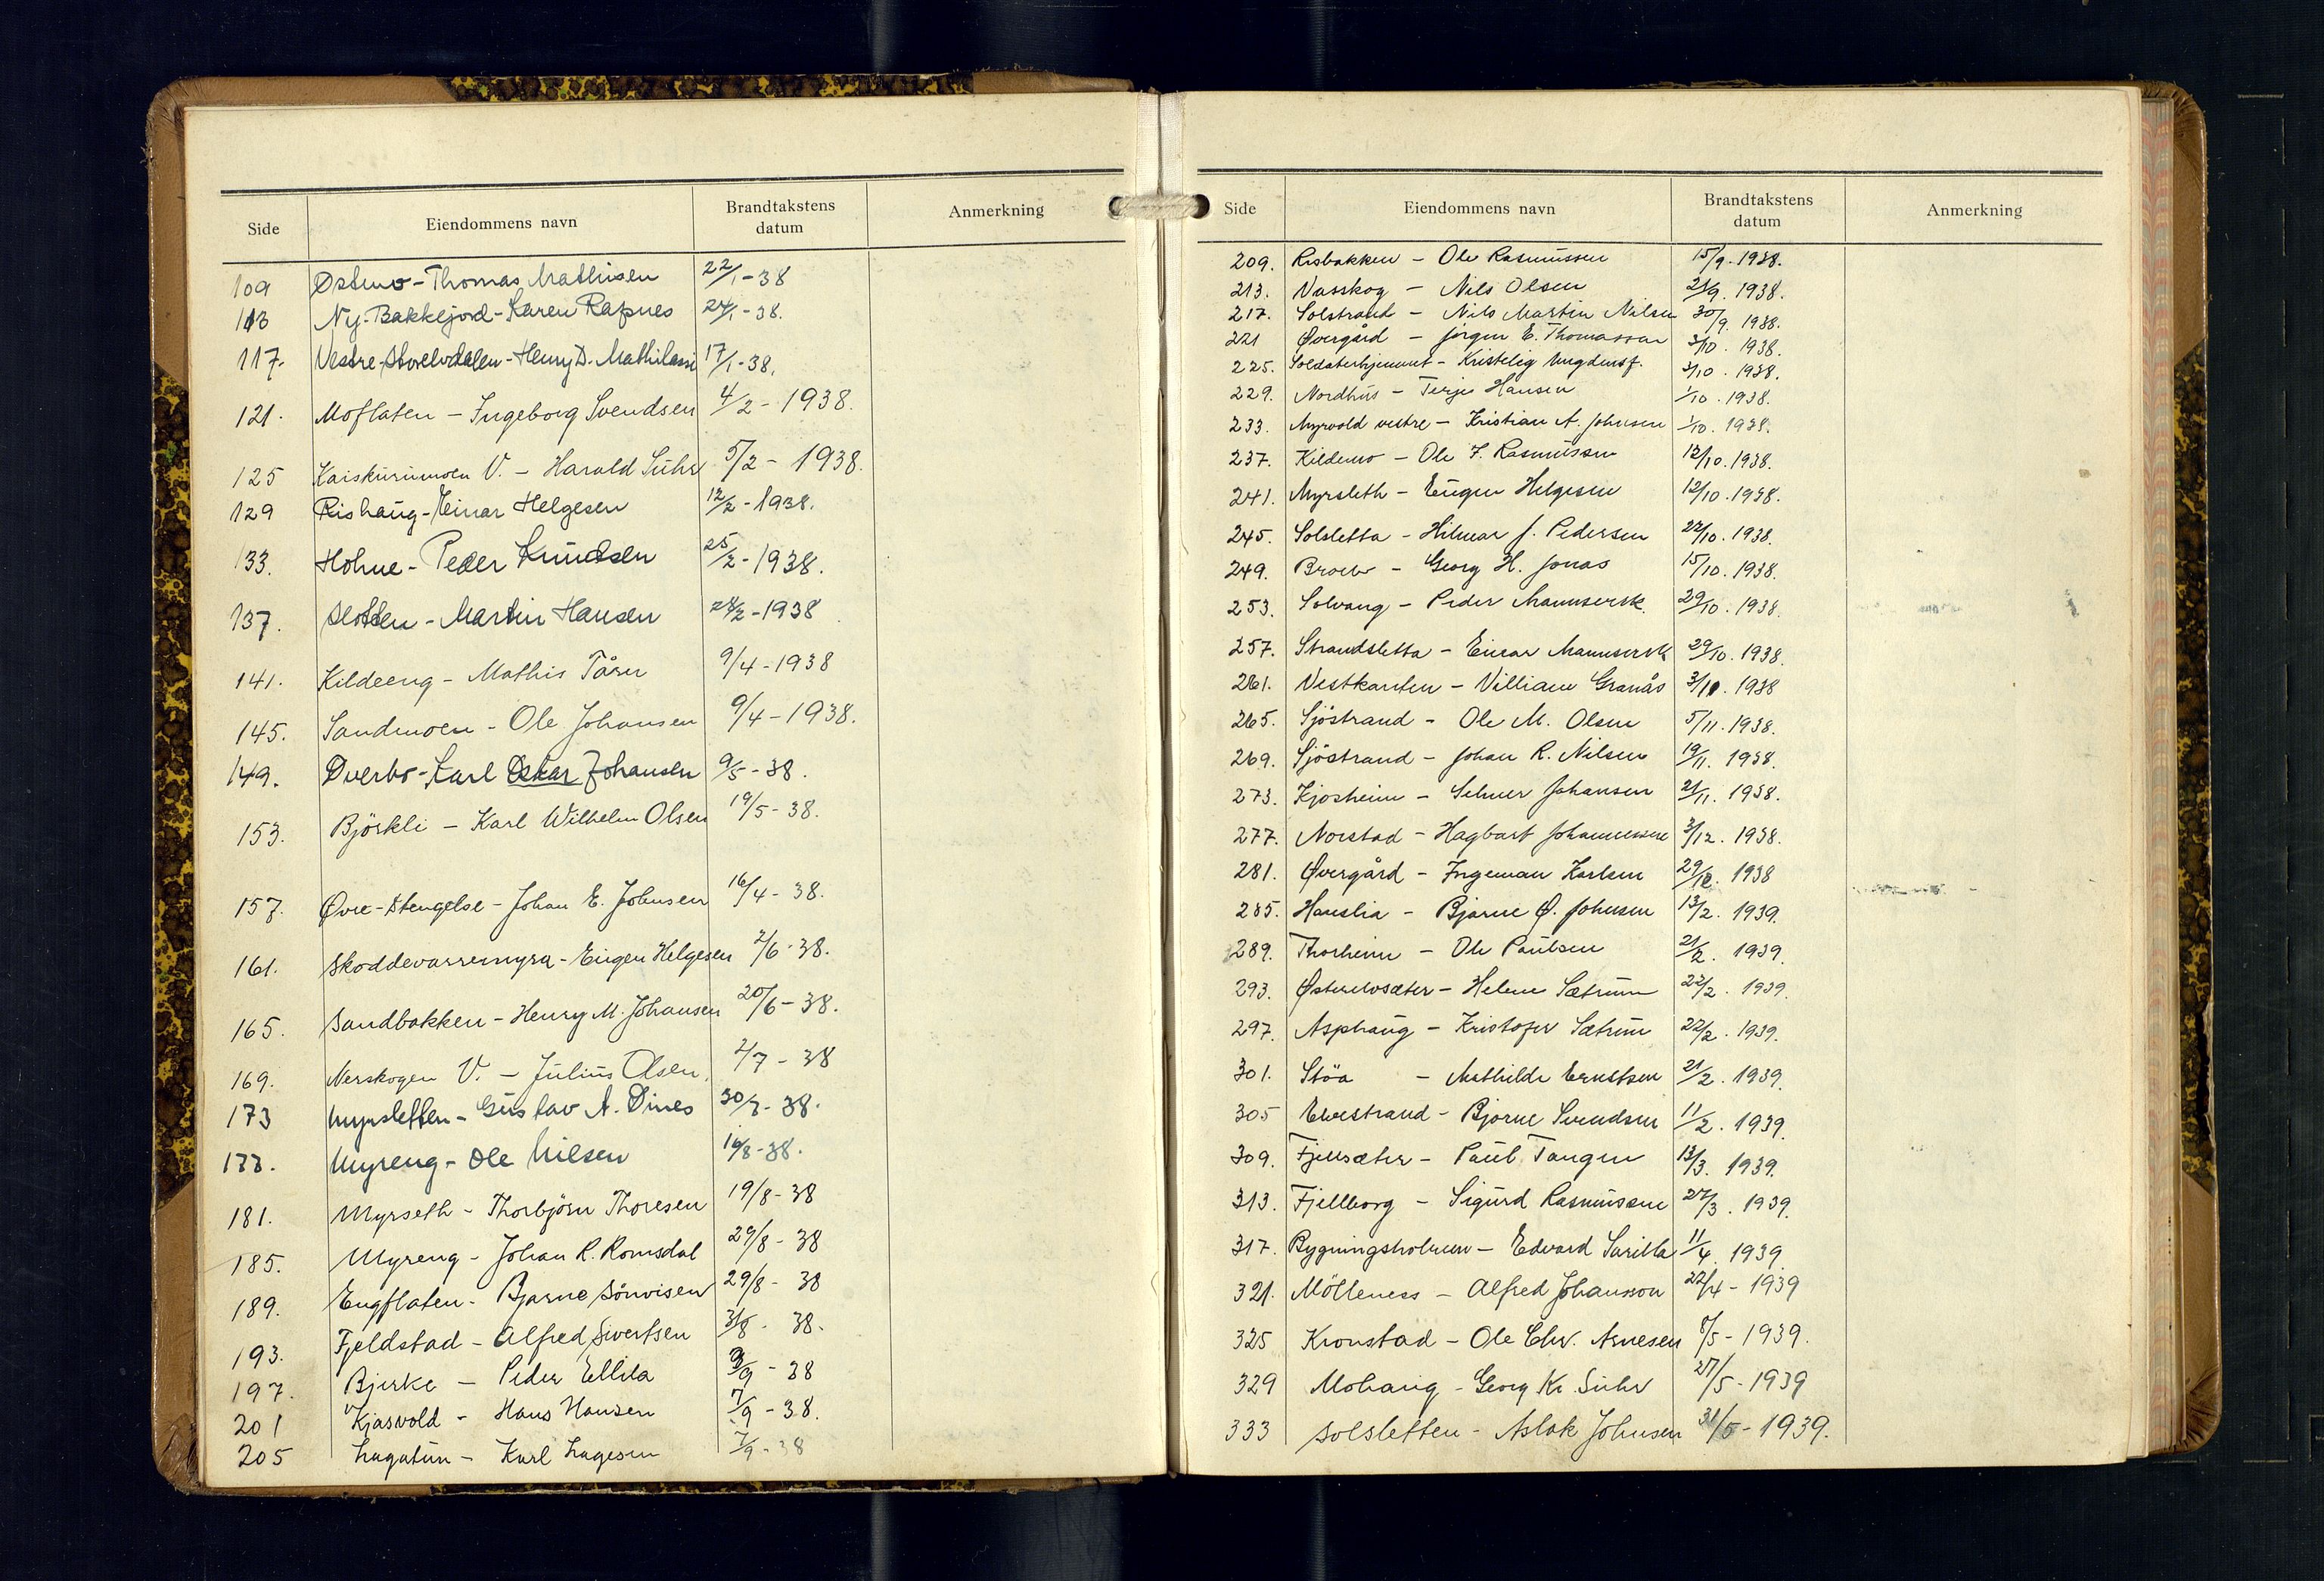 Side Eiendommens navn Brandtakstens datum Anmerkning
109 Østmo - Thomas Mathisen 22/1 - 38
113 Ny-Bakkejord - Karen Rapnes 24/1 - 38.
117. Vestre - Henry D. Mathilassi 17/1 - 38.
121. Moflaten - Ingeborg Svendsen 4/2 - 1938.
125 Kaiskurumoen V. - Harald Suhr 5/2 - 1938.
129 Rishaug - Einar Helgesen 12/2 - 1938.
133. Holme - Peder Knudsen 25/2 - 1938.
137. Slotten - Martin Hansen 28/2 - 1938
141. Kildeeng - Mathis Tårn 9/4 - 1938
145. Sandmoen - Ole Johansen 9/4 - 1938.
149. Dverbo - Karl Oskar Johansen 9/5 - 38.
153. Björkli - Karl Wilhelm Olsen 19/5 - 38.
157. Øvre-Stengelse - Johan E. Johnsen 16/4 - 38.
161. Skoddevarremyra - Eugen Helgesen 2/6 - 38.
165. Sandbakken - Henry M. Johansen 20/6 - 38.
169. Nerskogen V. - Julius Olsen. 2/7 - 38
173 Myrsletten - Gustav A. Dines 30/7 - 38.
177. Myreng - Ole Nilsen 16/8 - 38.
181. Myrseth - Thorbjörn Thoresen 19/8 - 38
185. Myreng - Johan R. Romsdal 29/8 - 38
189. Engflaten - Bjarne Sönvisen 29/8 - 38
193. Fjeldstad - Alfred Sivertsen 31/8 - 38.
197. Bjerke - Peder Ellila 3/9 - 38
201 Kjasvold - Hans Hansen 7/9 - 38.
205 Lagatun - Karl Lagesen 7/9 - 38
Side Eiendommens navn Brandtakstens datum Anmerkning
209. Risbakken - Ole Rasmussen 15/9 - 1938.
213. Vasskog - Nils Olsen 21/9. 1938.
217. Solstrand - Nils Martin Nilsen 30/9. 1938.
221 Øvergård - Jörgen E. Thomassen 3/10. 1938.
225. Soldaterhjemmet - Kristelig Ungdomsf. 3/10. 1938.
229. Nordhus - Terje Hansen 1/10. 1938.
233. Myrvold vestre - Kristian A. Johnsen 1/10. 1938.
237. Kildemo - Ole F. Rasmussen 12/10. 1938.
241. Myrsleth - Eugen Helgesen 12/10. 1938.
245. Solsletta - Hilmar J. Pedersen 22/10. 1938.
249. Broelv - Georg H. Jonas 15/10. 1938.
253. Solvang - Peder Mannsverk. 29/10. 1938.
257. Strandsletta - Einar Mannsverk 29/10. 1938.
261. Vestkanten - William Granås 3/11. 1938
265. Sjöstrand - Ole M. Olsen 5/11. 1938.
269. Sjöstrand - Johan R. Nilsen 19/11. 1938.
273. Kjosheim - Selmer Johansen 21/11. 1938.
277. Norstad - Hagbart Johannessen 3/12. 1938.
281. Øvergård - Ingeman Karlsen 29/12. 1938
285. Hauslia - Bjarne Ø. Johnsen 13/2. 1939.
289. Thorheim - Ole Paulsen 21/2. 1939.
293. Østrelvsæter - Helene Sætrum 22/2. 1939.
297. Asphaug - Kristofer Sætrum 22/2. 1939.
301. Stöa - Mathilde Erntsen 21/2. 1939.
305 Elvestrand - Bjarne Svendsen 11/2. 1939.
309. Fjellsæter - Paul Tangen 13/3. 1939.
313. Fjellborg - Sigurd Rasmussen 27/3. 1939.
317. Bygningsholmen - Edvard Sarilla 11/4. 1939.
321. Mölleness - Alfred Johansson 22/4 - 1939
325 Kronstad - Ole Chr. Arnesen 8/5 - 1939.
329 Mohaug - Georg Kr. Suhr 27/5 - 1939
333 Solsletten - Aslak Johnsen 31/5 - 1939.